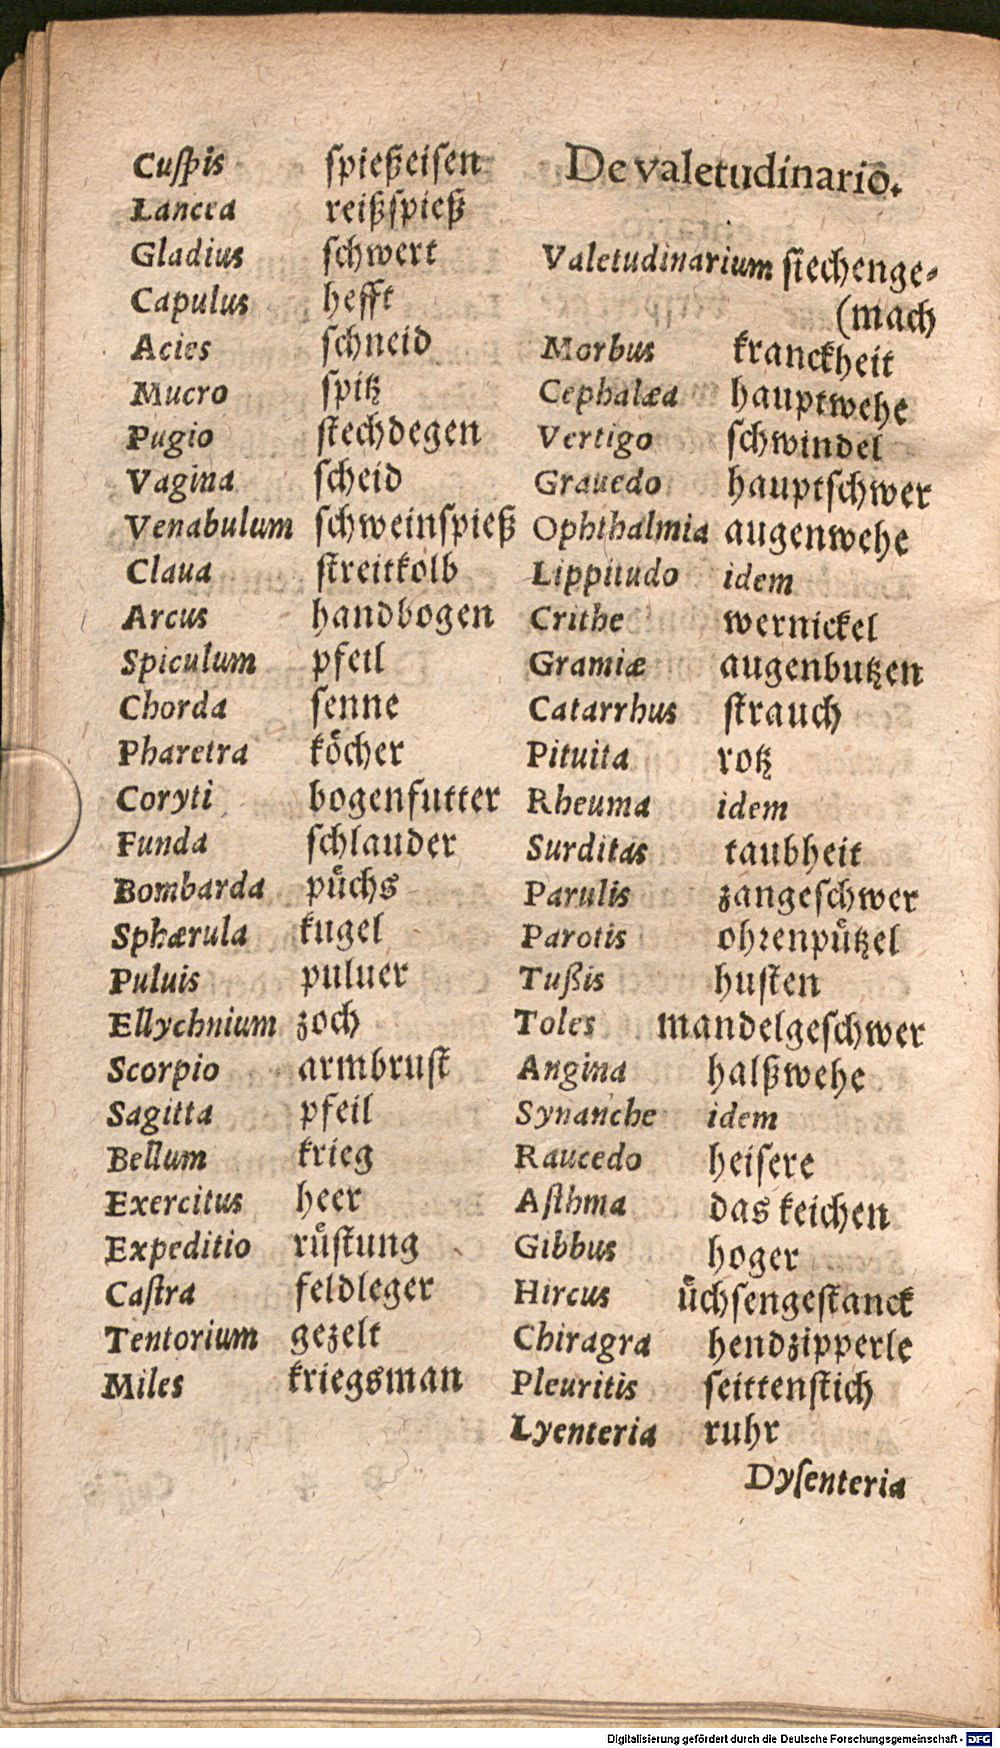 Cuſpis ſpießeiſen
Lancea reißſpieß
Gladius ſchwert
Capulus hefft
Acies ſchneid
Mucro ſpitz
Pugio ſtechdegen
Vagina ſcheid
Venabulum ſchweinſpieß
Claua ſtreitkolb
Arcus handbogen
Spiculum pfeil
Chorda ſenne
Pharetra koͤcher
Coryti bogenfutter
Funda ſchlauder
Bombarda puͤchs
Sphærula kugel
Puluis puluer
Ellychnium zoch
Scorpio armbruſt
Sagitta pfeil
Bellum krieg
Exercitus heer
Expeditio ruͤſtung
Caſtra feldleger
Tentorium gezelt
Miles kriegsman
De valetudinario.
Valetudinarium ſiechenge⸗
(mach
Morbus kranckheit
Cephalæa hauptwehe
Vertigo ſchwindel
Grauedo hauptſchwer
Ophthalmia augenwehe
Lippitudo idem
Crithe wernickel
Gramiæ augenbutzen
Catarrhus ſtrauch
Pituita rotz
Rheuma idem
Surditas taubheit
Parulis zangeſchwer
Parotis ohꝛenpuͤtzel
Tußis huſten
Toles mandelgeſchwer
Angina halßwehe
Synanche idem
Raucedo heiſere
Aſthma das keichen
Gibbus hoger
Hircus uͤchſengeſtanck
Chiragra hendzipperle
Pleuritis ſeittenſtich
Lyenteria ruhr
Dyſenteria
Digitalisierung gefördert durch die Deutsche Forschungsgemeinschaft - DFG